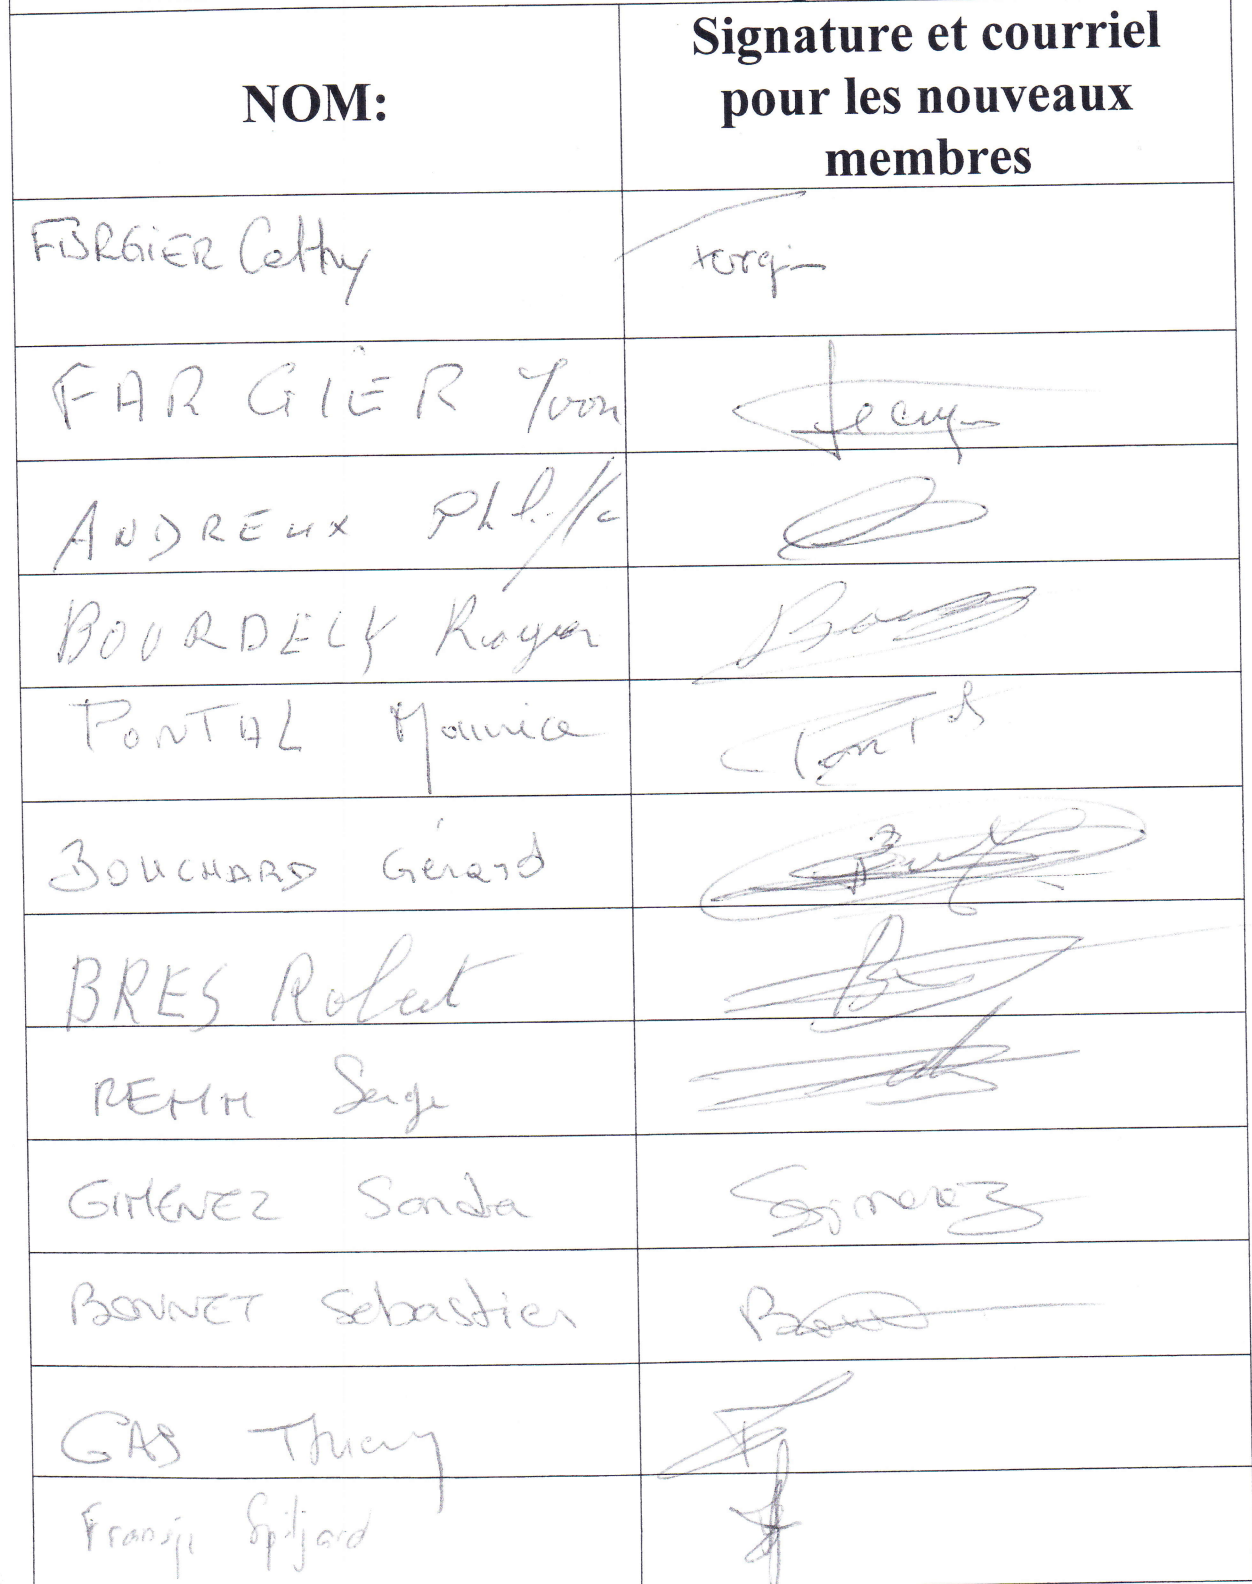 NOM:
Signature et courriel
pour les nouveaux
membres
FARGIER Cathy
FARGIER Yvon
ANDREUX Philippe
BOURDELY Roger
PONTAL Maurice
Pontal
BOUCHARD Gérard
BRES Robert
REMM Serge
GIMENEZ Sandra
Sgimenez
BONNET Sébastien
GAS Thierry